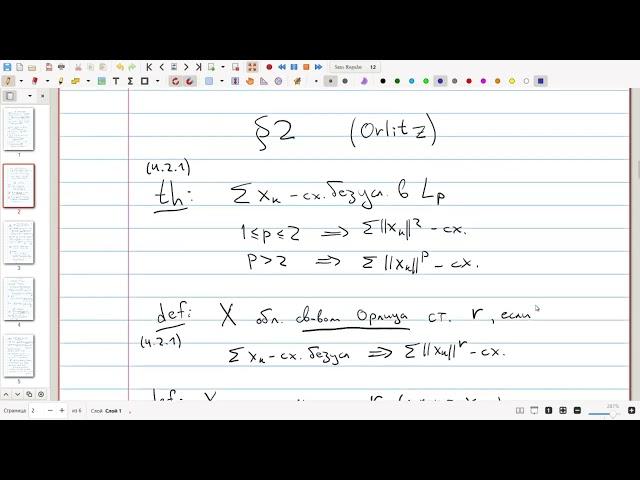 Sans Regular 12
§2 (Orlitz)
(4.2.1)
th: ∑ xₖ - сх. безусл. в Lₚ
1 ≤ p ≤ 2 ⟹ ∑ ||xₖ||² - сх.
p > 2 ⟹ ∑ ||xₖ||ᵖ - сх.
def: X обл. св-вом Орлица ст. r, если
(4.2.1)
∑ xₖ - сх. безусл ⟹ ∑ ||xₖ||ʳ - сх.
1
2
3
4
5
Страница 2 из 6 Слой Слой 1
287%